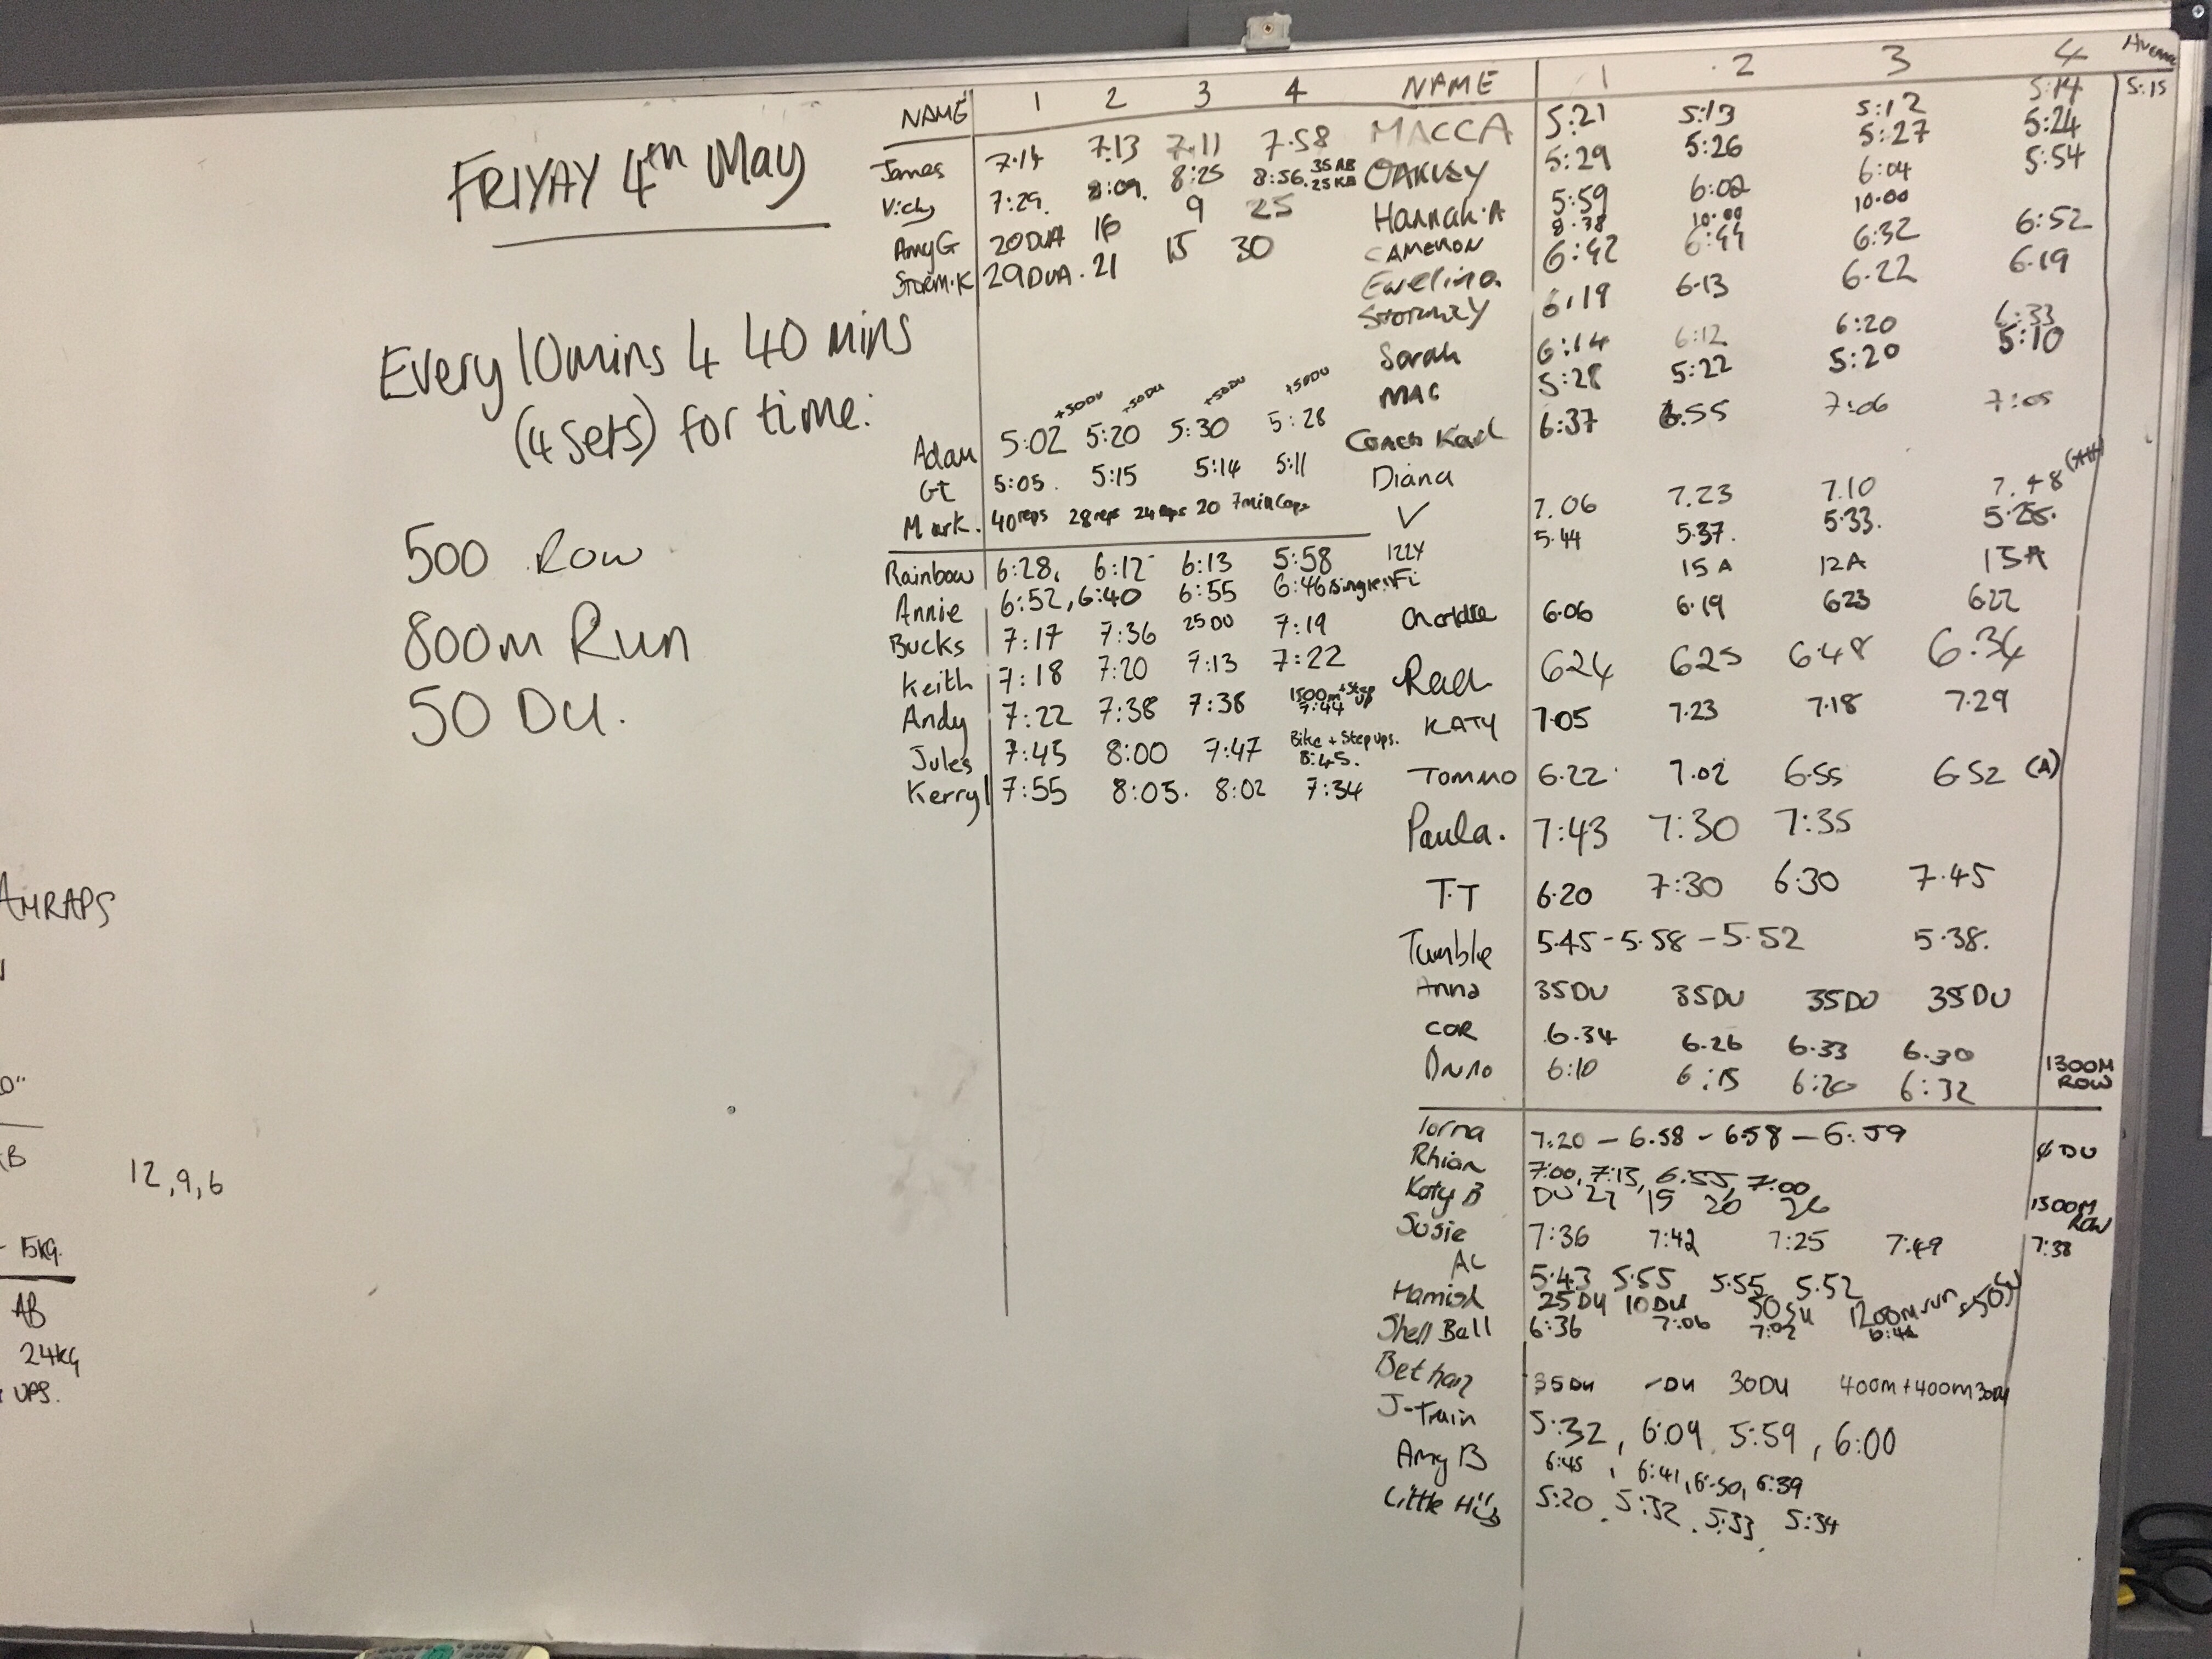 FRIYAY 4th May
Every 10mins 4 40 mins
(4 sets) for time:
500 Row
800m Run
50 DU.
AMRAPS
12, 9, 6
15kg.
AB
24kg
UPS.
NAME 1 2 3 4
James 7.14 7.13 7.11 7.58
Vicky 7:29. 8:09. 8:25 8:56. 35AB 25KB
Amy G 20DUA 16 9 25
Storm.K 29DUA. 21 15 30
+50DU +50DU +50DU +50DU
Adam 5:02 5:20 5:30 5:28
GT 5:05. 5:15 5:14 5:11
Mark. 40reps 28reps 24reps 20 7minCaps
Rainbow 6:28, 6:12 6:13 5:58
Annie 6:52, 6:40 6:55 6:46 singles!!
Bucks 7:17 7:36 25DU 7:19
Keith 7:18 7:20 7:13 7:22
Andy 7:22 7:38 7:38 1500m + Step up 7:44
Jules 7:45 8:00 7:47 Bike + Step ups. 8:45.
Kerry 7:55 8:05. 8:02 7:34
NAME 1 2 3 4 Average
MACCA 5:21 5:13 5:12 5:14 5:15
OAKLEY 5:29 5:26 5:27 5:24
Hannah.A 5:59 6:02 6:04 5:54
CAMERON 8.38 10.00 10.00
Ewelina 6:42 6:44 6:32 6:52
STORMZY 6:19 6.13 6.22 6.19
Sarah 6:14 6:12 6:20 6:33
MAC 5:28 5:22 5:20 5:10
Coach Karl 6:37 6.55 7:06 7:05
Diana
✓ 7.06 7.23 7.10 7.48
IZZY 5.44 5.37. 5.33. 5.25.
Fi 15A 12A 15A
Charlotte 6.06 6.19 623 622
Rach 624 625 6.48 6.34
KATY 7.05 7.23 7.18 7.29
TOMMO 6.22 7.02 6.55 6.52 (A)
Paula. 7:43 7:30 7:35
T.T 6.20 7:30 6:30 7.45
Tumble 5.45 - 5.58 - 5.52 5.38.
Anna 35DU 35DU 35DU 35DU
COR 6.34 6.26 6.33 6.30
6:10 6:15 6:20 6:32 1300M ROW
Lorna 7.20 - 6.58 - 6.58 - 6:59
Rhian 7:00, 7:13, 6:55, 7:00 DU
Katy B DU 27 19 20 26 1300M ROW
Susie 7:36 7:42 7:25 7:49 7:38
AL 5:43 5.55 5.55 5.52
Hamish 25DU 10DU 50SU 1200m run
Shell Ball 6:36 7:06 7:02
Bethan 35DU DU 30DU 400m + 400m 30DU
J-Train 5:32, 6:09, 5:59, 6:00
Amy B 6:45, 6:41, 6:50, 6:39
Little 5:20. 5:32. 5:33. 5:34